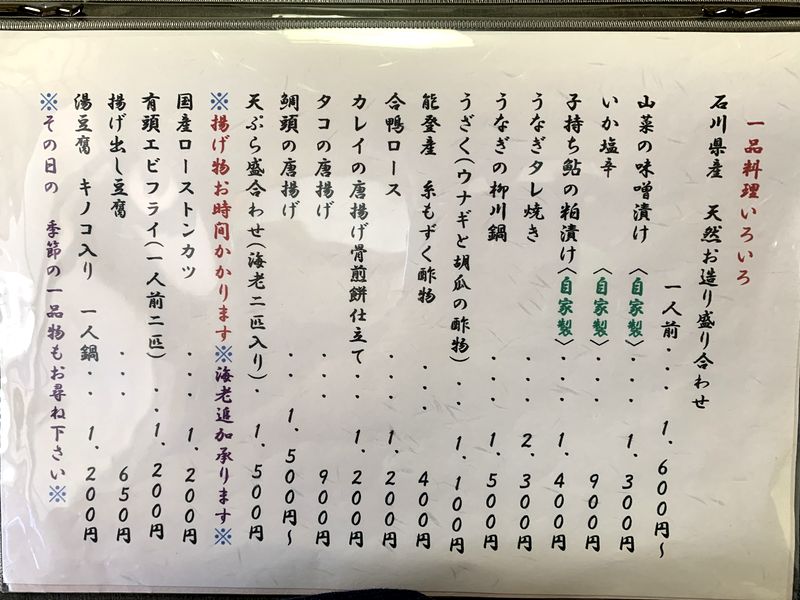 一品料理いろいろ
石川県産 天然お造り盛り合わせ
一人前・・・1,600円～
山菜の味噌漬け〈自家製〉・・・1,300円
いか塩辛〈自家製〉・・・900円
子持ち鮎の粕漬け〈自家製〉・・・1,400円
うなぎタレ焼き・・・2,300円
うなぎの柳川鍋・・・1,500円
うざく(ウナギと胡瓜の酢物)・・・1,100円
能登産 糸もずく酢物・・・400円
合鴨ロース・・・1,200円
カレイの唐揚げ骨煎餅仕立て・・1,200円
タコの唐揚げ・・・900円
鯛頭の唐揚げ・・・1,500円～
天ぷら盛合わせ(海老二匹入り)・・1,500円
※揚げ物お時間かかります※海老追加承ります※
国産ローストンカツ・・・1,200円
有頭エビフライ(一人前二匹)・・・1,200円
揚げ出し豆腐・・・650円
湯豆腐 キノコ入り 一人鍋・・・1,200円
※その日の 季節の一品物もお尋ね下さい※